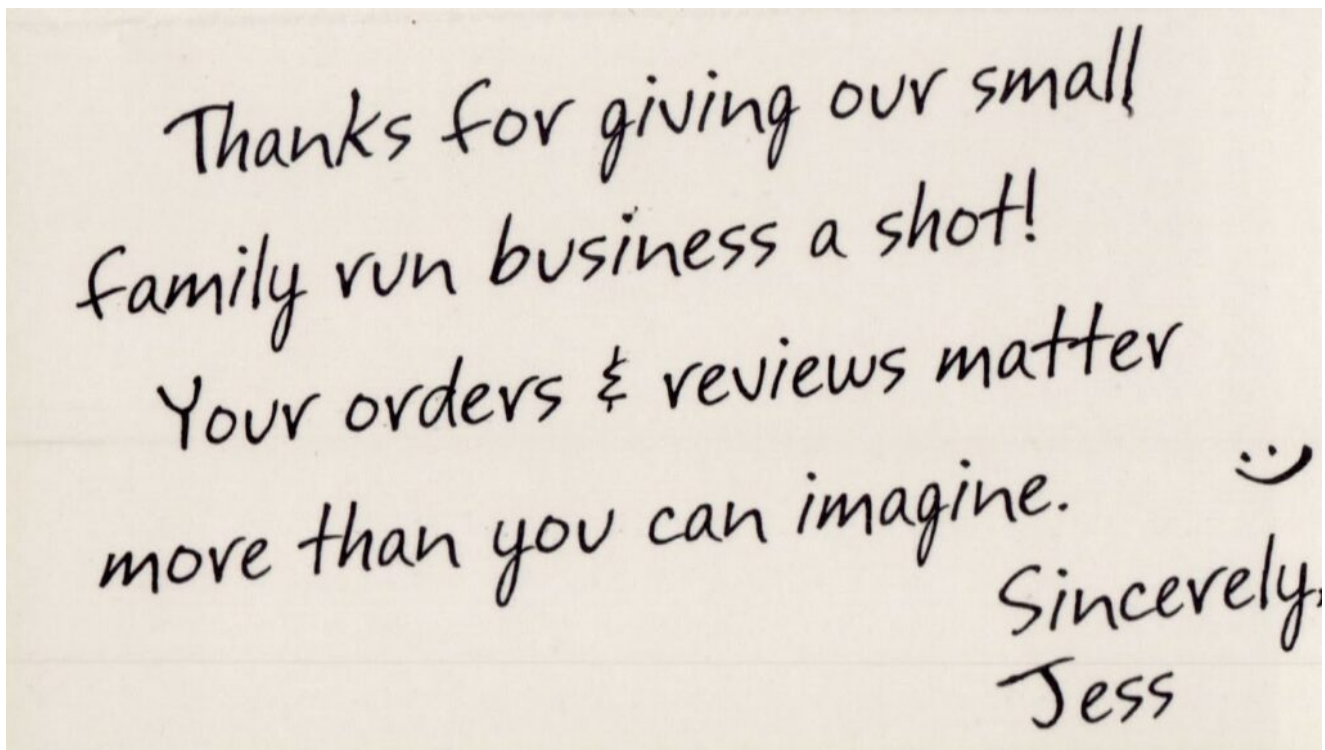 Thanks for giving our small
family run business a shot!
Your orders & reviews matter
more than you can imagine.
:)
Sincerely,
Jess